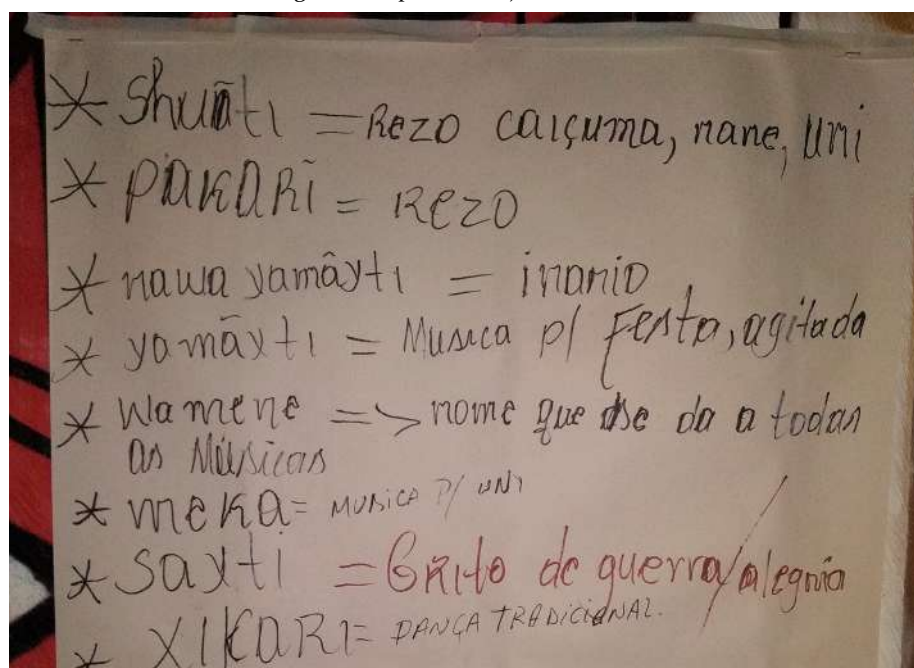 * Shuãti = Rezo caiçuma, nane, uni
* PAKARĨ = REZO
* nawa yamâxti =
* yamãxti = Musica p/ Festa, agitada
* Wamene => nome que se da a todas
as Músicas
* meka = MUSICA P/ UNI
* Saxti = Grito de guerra/alegria
* XIKARI = DANÇA TRADICIONAL.